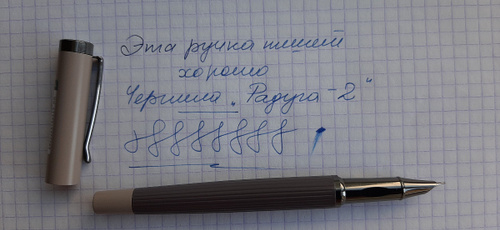 Эта ручка пишет
хорошо
Чернила „Радуга-2"